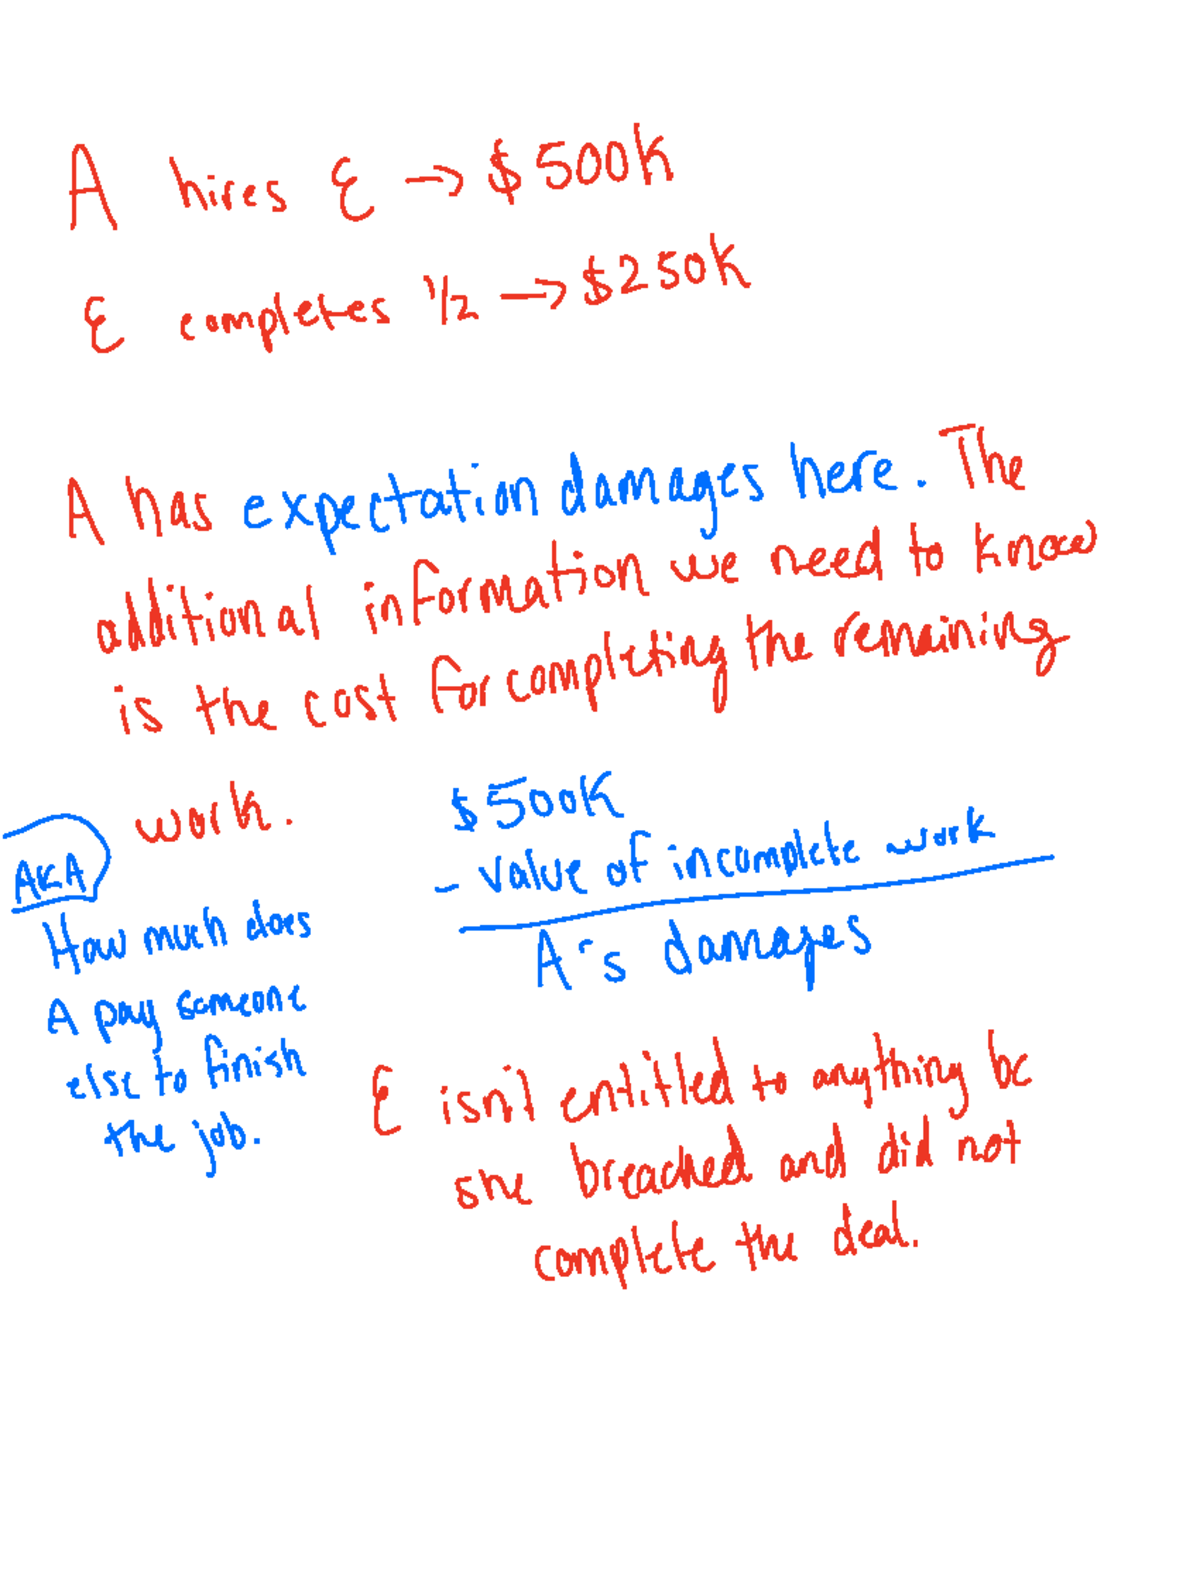 A hires E → $500K
E completes 1/2 → $250K
A has expectation damages here. The
additional information we need to know
is the cost for completing the remaining
work.
$500K
- value of incomplete work
A's damages
AKA
How much does
A pay someone
else to finish
the job.
E isn't entitled to anything bc
she breached and did not
complete the deal.